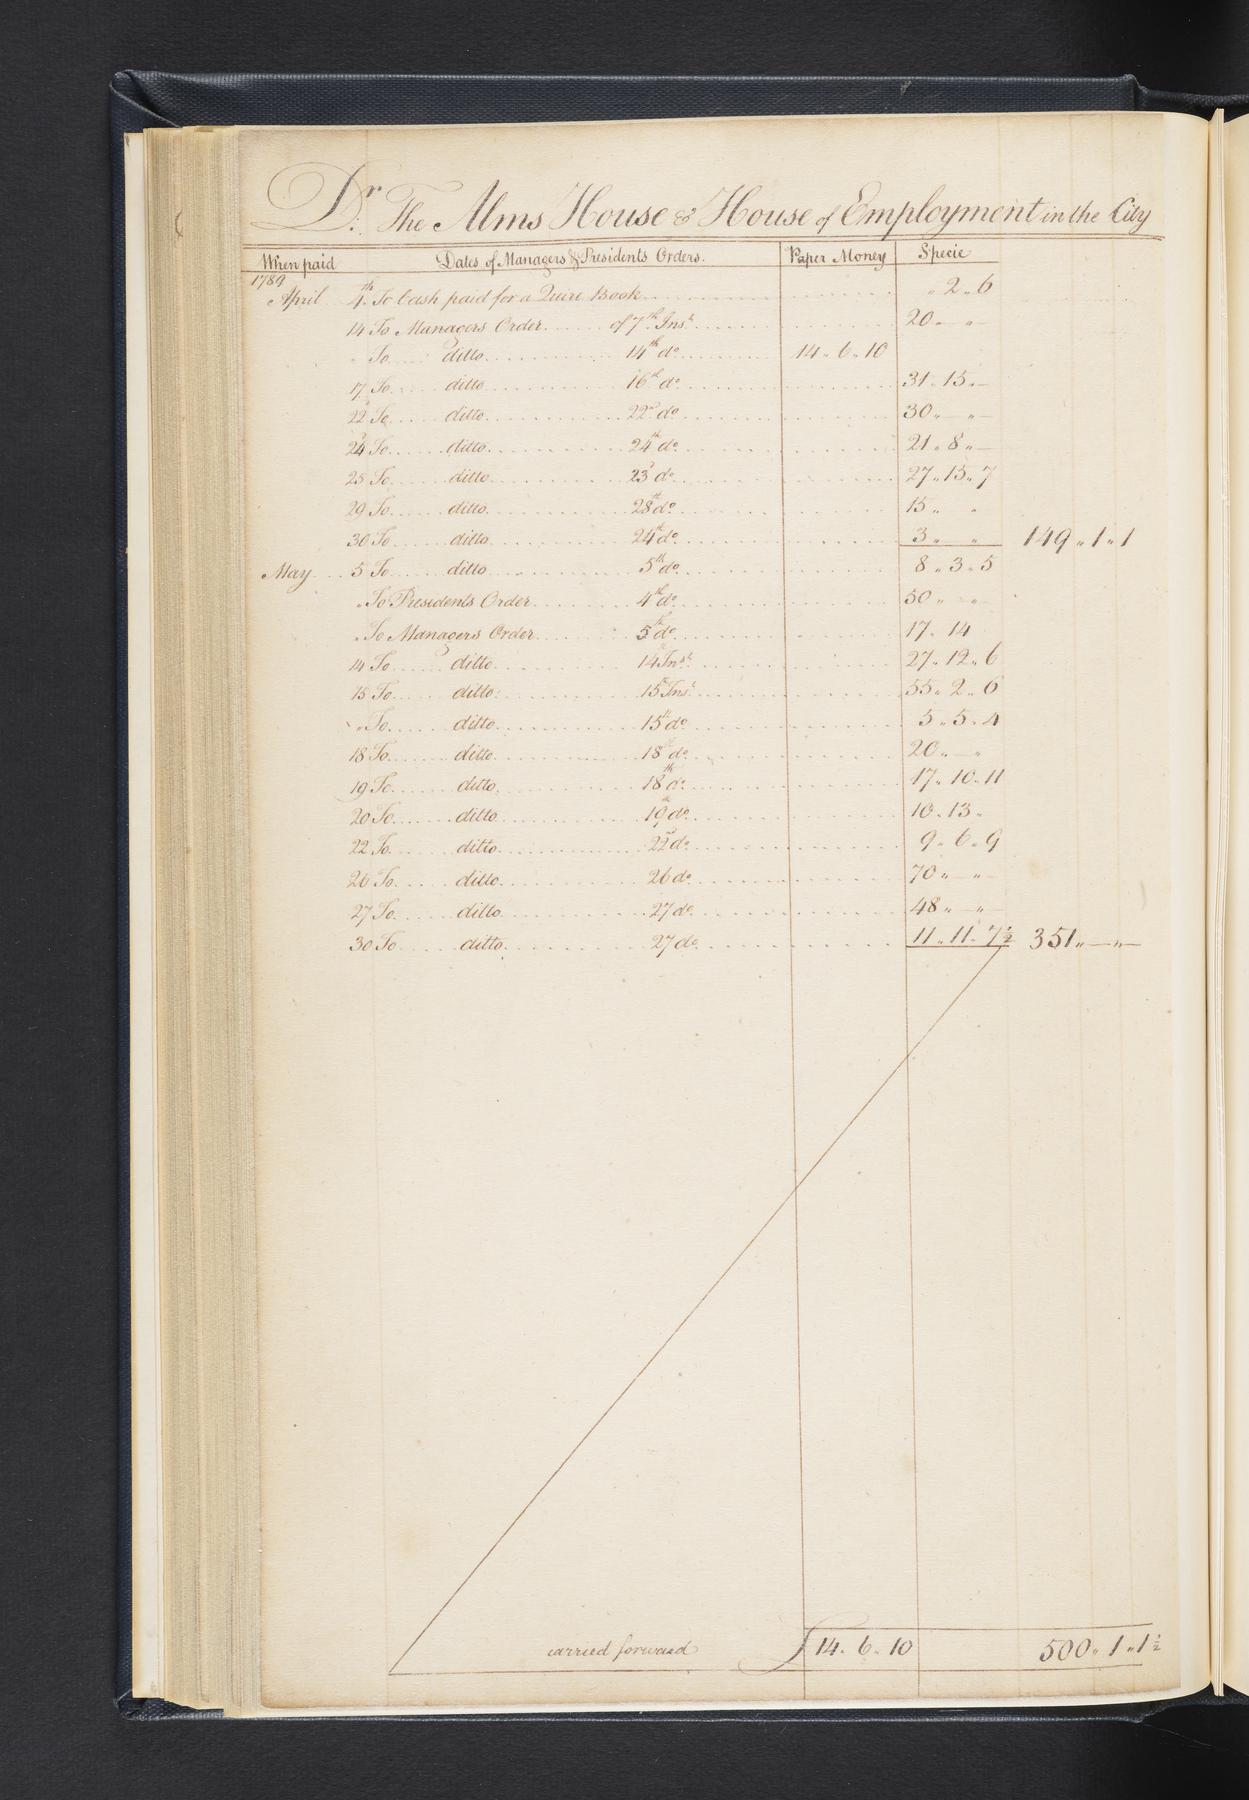 Dr. The Alms House & House of Employment in the City
When paid Dates of Managers & Presidents Orders. Paper Money Specie
1789
April 4th. To Cash paid for a Quire Book " 2 " 6
14 To Managers Order of 7th Inst. 20 " — " —
" To ditto 14th do. 14 " 6 " 10
17 To ditto 16th do. 31 " 15 " —
22 To ditto 22d do. 30 " — " —
24 To ditto 24th do. 21 " 8 " —
25 To ditto 23d do. 27 " 15 " 7
29 To ditto 28th do. 15 " "
30 To ditto 24th do. 3 " " 149 " 1 " 1
May 5 To ditto 5th do. 8 " 3 " 5
" To Presidents Order 4th do. 50 " — "
" To Managers Order 5th do. 17 " 14
14 To ditto 14 Inst. 27 " 12 " 6
15 To ditto 15th Inst. 55 " 2 " 6
" To ditto 15th do. 5 " 5 " 4
18 To ditto 18th do. 20 " — "
19 To ditto 18th do. 17 " 10 " 11
20 To ditto 19th do. 10 " 13 "
22 To ditto 22d do. 9 " 6 " 9
26 To ditto 26 do. 70 " — " —
27 To ditto 27 do. 48 " — " —
30 To ditto 27 do. 11 " 11 " 7½ 351 " — " —
carried forward £14 " 6 " 10 500 " 1 " 1½